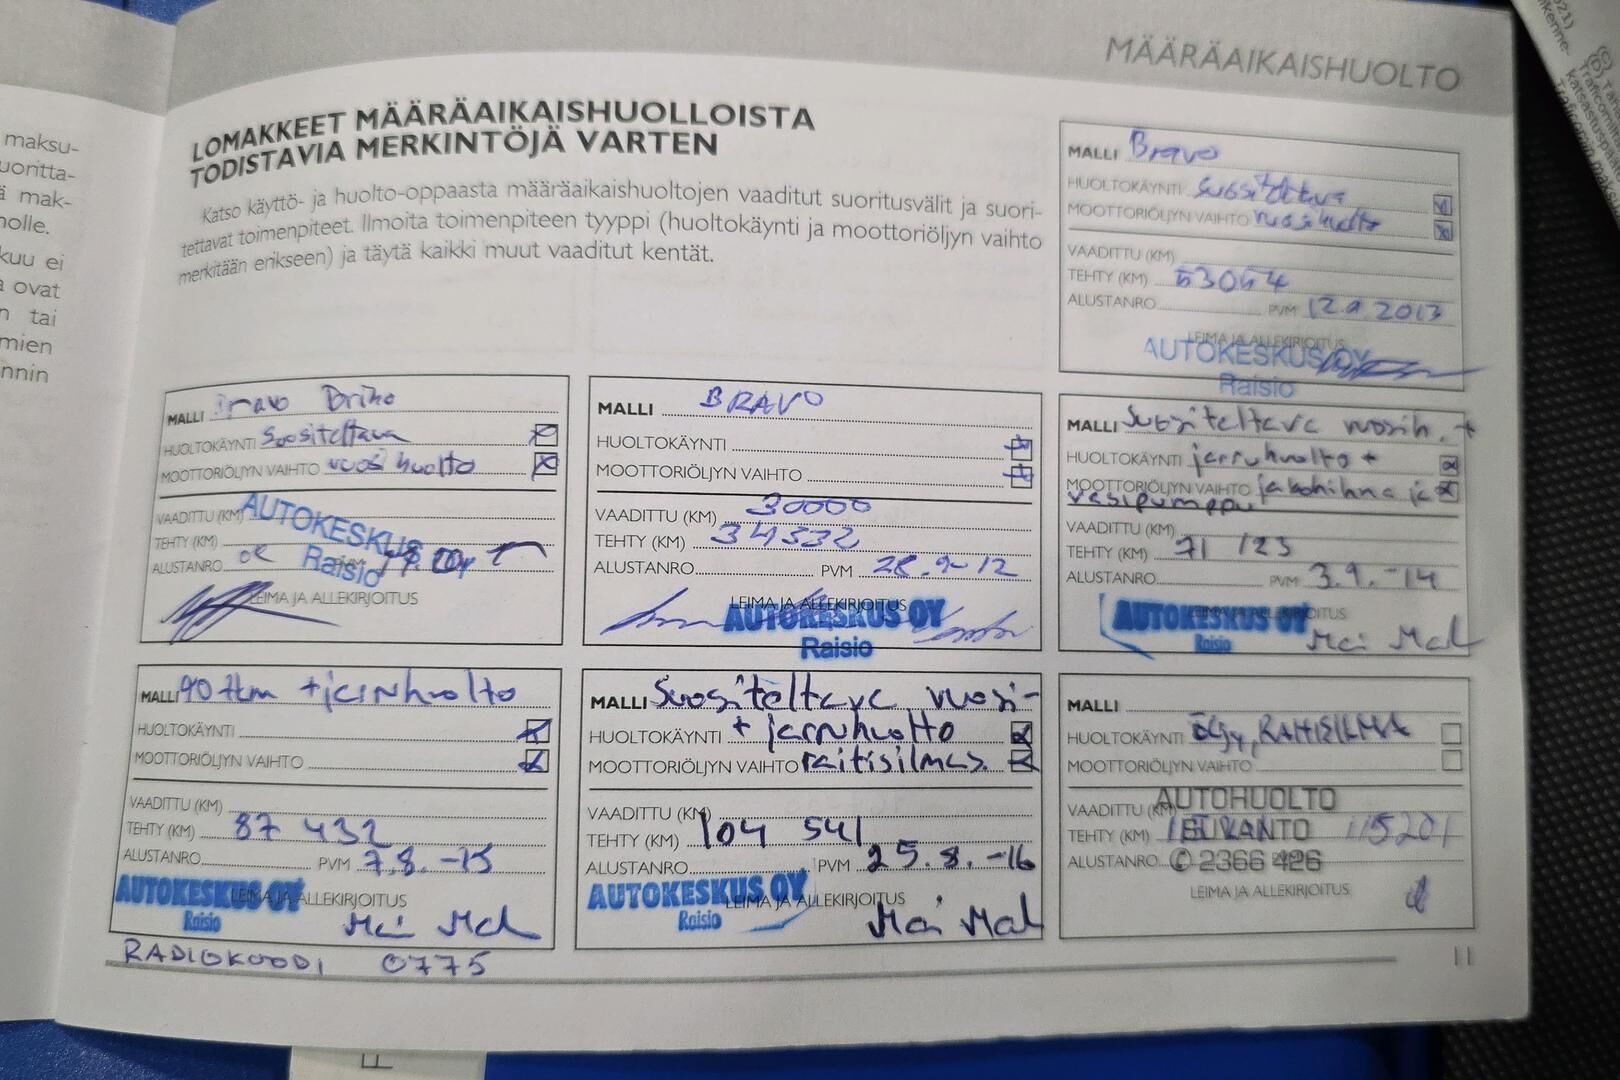 MÄÄRÄAIKAISHUOLTO
maksu-
uoritta-
ä mak-
holle.
kuu ei
a ovat
n tai
mien
nnin
LOMAKKEET MÄÄRÄAIKAISHUOLLOISTA
TODISTAVIA MERKINTÖJÄ VARTEN
Katso käyttö- ja huolto-oppaasta määräaikaishuoltojen vaaditut suoritusvälit ja suori-
tettavat toimenpiteet. Ilmoita toimenpiteen tyyppi (huoltokäynti ja moottoriöljyn vaihto
merkitään erikseen) ja täytä kaikki muut vaaditut kentät.
MALLI Bravo
HUOLTOKÄYNTI Suositeltava
MOOTTORIÖLJYN VAIHTO vuosihuolto
VAADITTU (KM)
TEHTY (KM) 53054
ALUSTANRO PVM 12.9.2013
LEIMA JA ALLEKIRJOITUS
AUTOKESKUS OY
Raisio
MALLI Bravo
HUOLTOKÄYNTI Suositeltava
MOOTTORIÖLJYN VAIHTO vuosihuolto
VAADITTU (KM)
TEHTY (KM)
ALUSTANRO ok
AUTOKESKUS Oy
Raisio
LEIMA JA ALLEKIRJOITUS
MALLI BRAVO
HUOLTOKÄYNTI
MOOTTORIÖLJYN VAIHTO
VAADITTU (KM) 30000
TEHTY (KM) 34532
ALUSTANRO PVM 28.9-12
LEIMA JA ALLEKIRJOITUS
AUTOKESKUS OY
Raisio
MALLI Suositeltava vuosih. +
HUOLTOKÄYNTI jarruhuolto +
MOOTTORIÖLJYN VAIHTO jakohihna ja
vesipumppu
VAADITTU (KM)
TEHTY (KM) 71 123
ALUSTANRO PVM 3.9.-14
LEIMA JA ALLEKIRJOITUS
AUTOKESKUS OY
Raisio
MALLI 90 tkm + jarruhuolto
HUOLTOKÄYNTI
MOOTTORIÖLJYN VAIHTO
VAADITTU (KM)
TEHTY (KM) 87 432
ALUSTANRO PVM 7.8.-15
AUTOKESKUS OY
LEIMA JA ALLEKIRJOITUS
Raisio
MALLI Suositeltava vuosi-
HUOLTOKÄYNTI + jarruhuolto
MOOTTORIÖLJYN VAIHTO raitisilmas.
VAADITTU (KM)
TEHTY (KM) 104 541
ALUSTANRO PVM 25.8.-16
AUTOKESKUS OY
LEIMA JA ALLEKIRJOITUS
Raisio
MALLI
HUOLTOKÄYNTI öljy, RAITISILMA
MOOTTORIÖLJYN VAIHTO
VAADITTU (KM) AUTOHUOLTO
TEHTY (KM) 115201
ALUSTANRO 2366 426
LEIMA JA ALLEKIRJOITUS
RADIOKOODI 0775
11